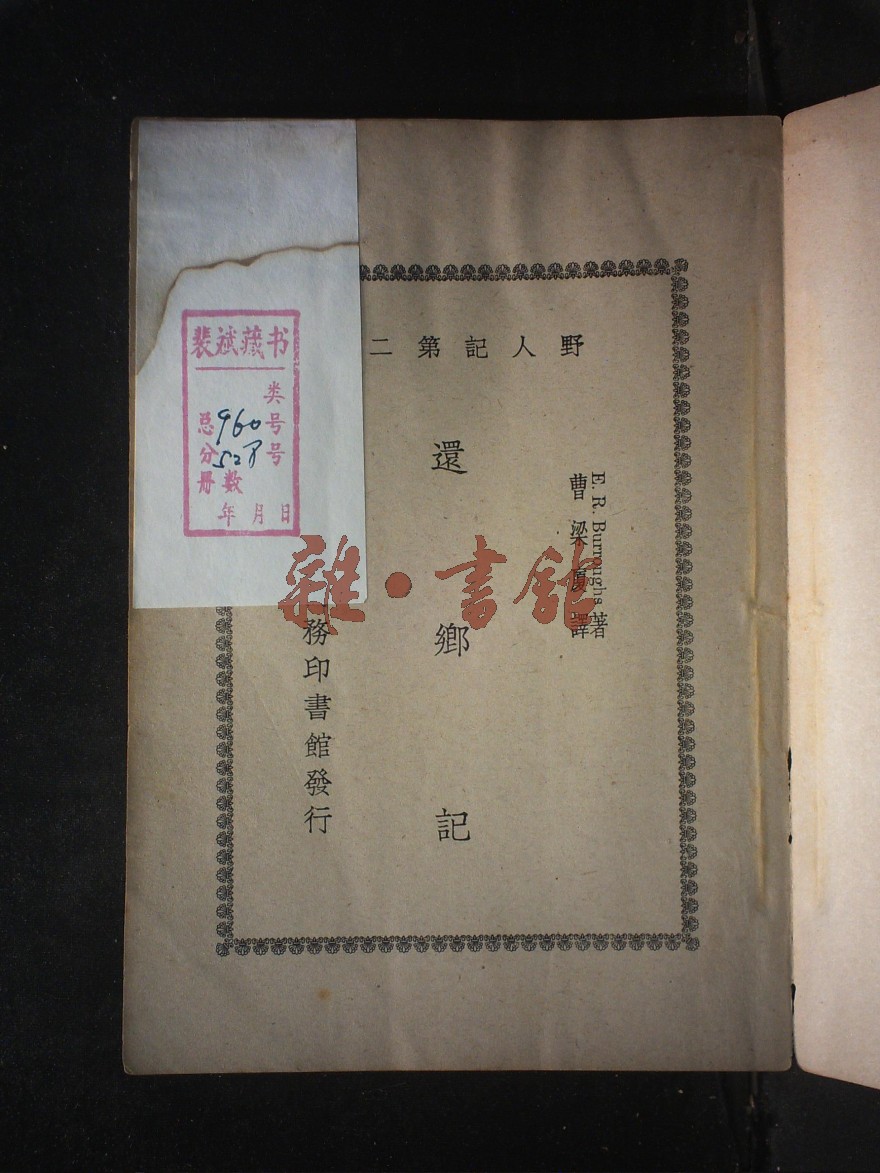 野人記第二
E. R. Burroughs 著
曹梁 譯
還鄉記
務印書館發行
裴斌藏书
类号
总号
960
分
册数
年月日
雜·書館